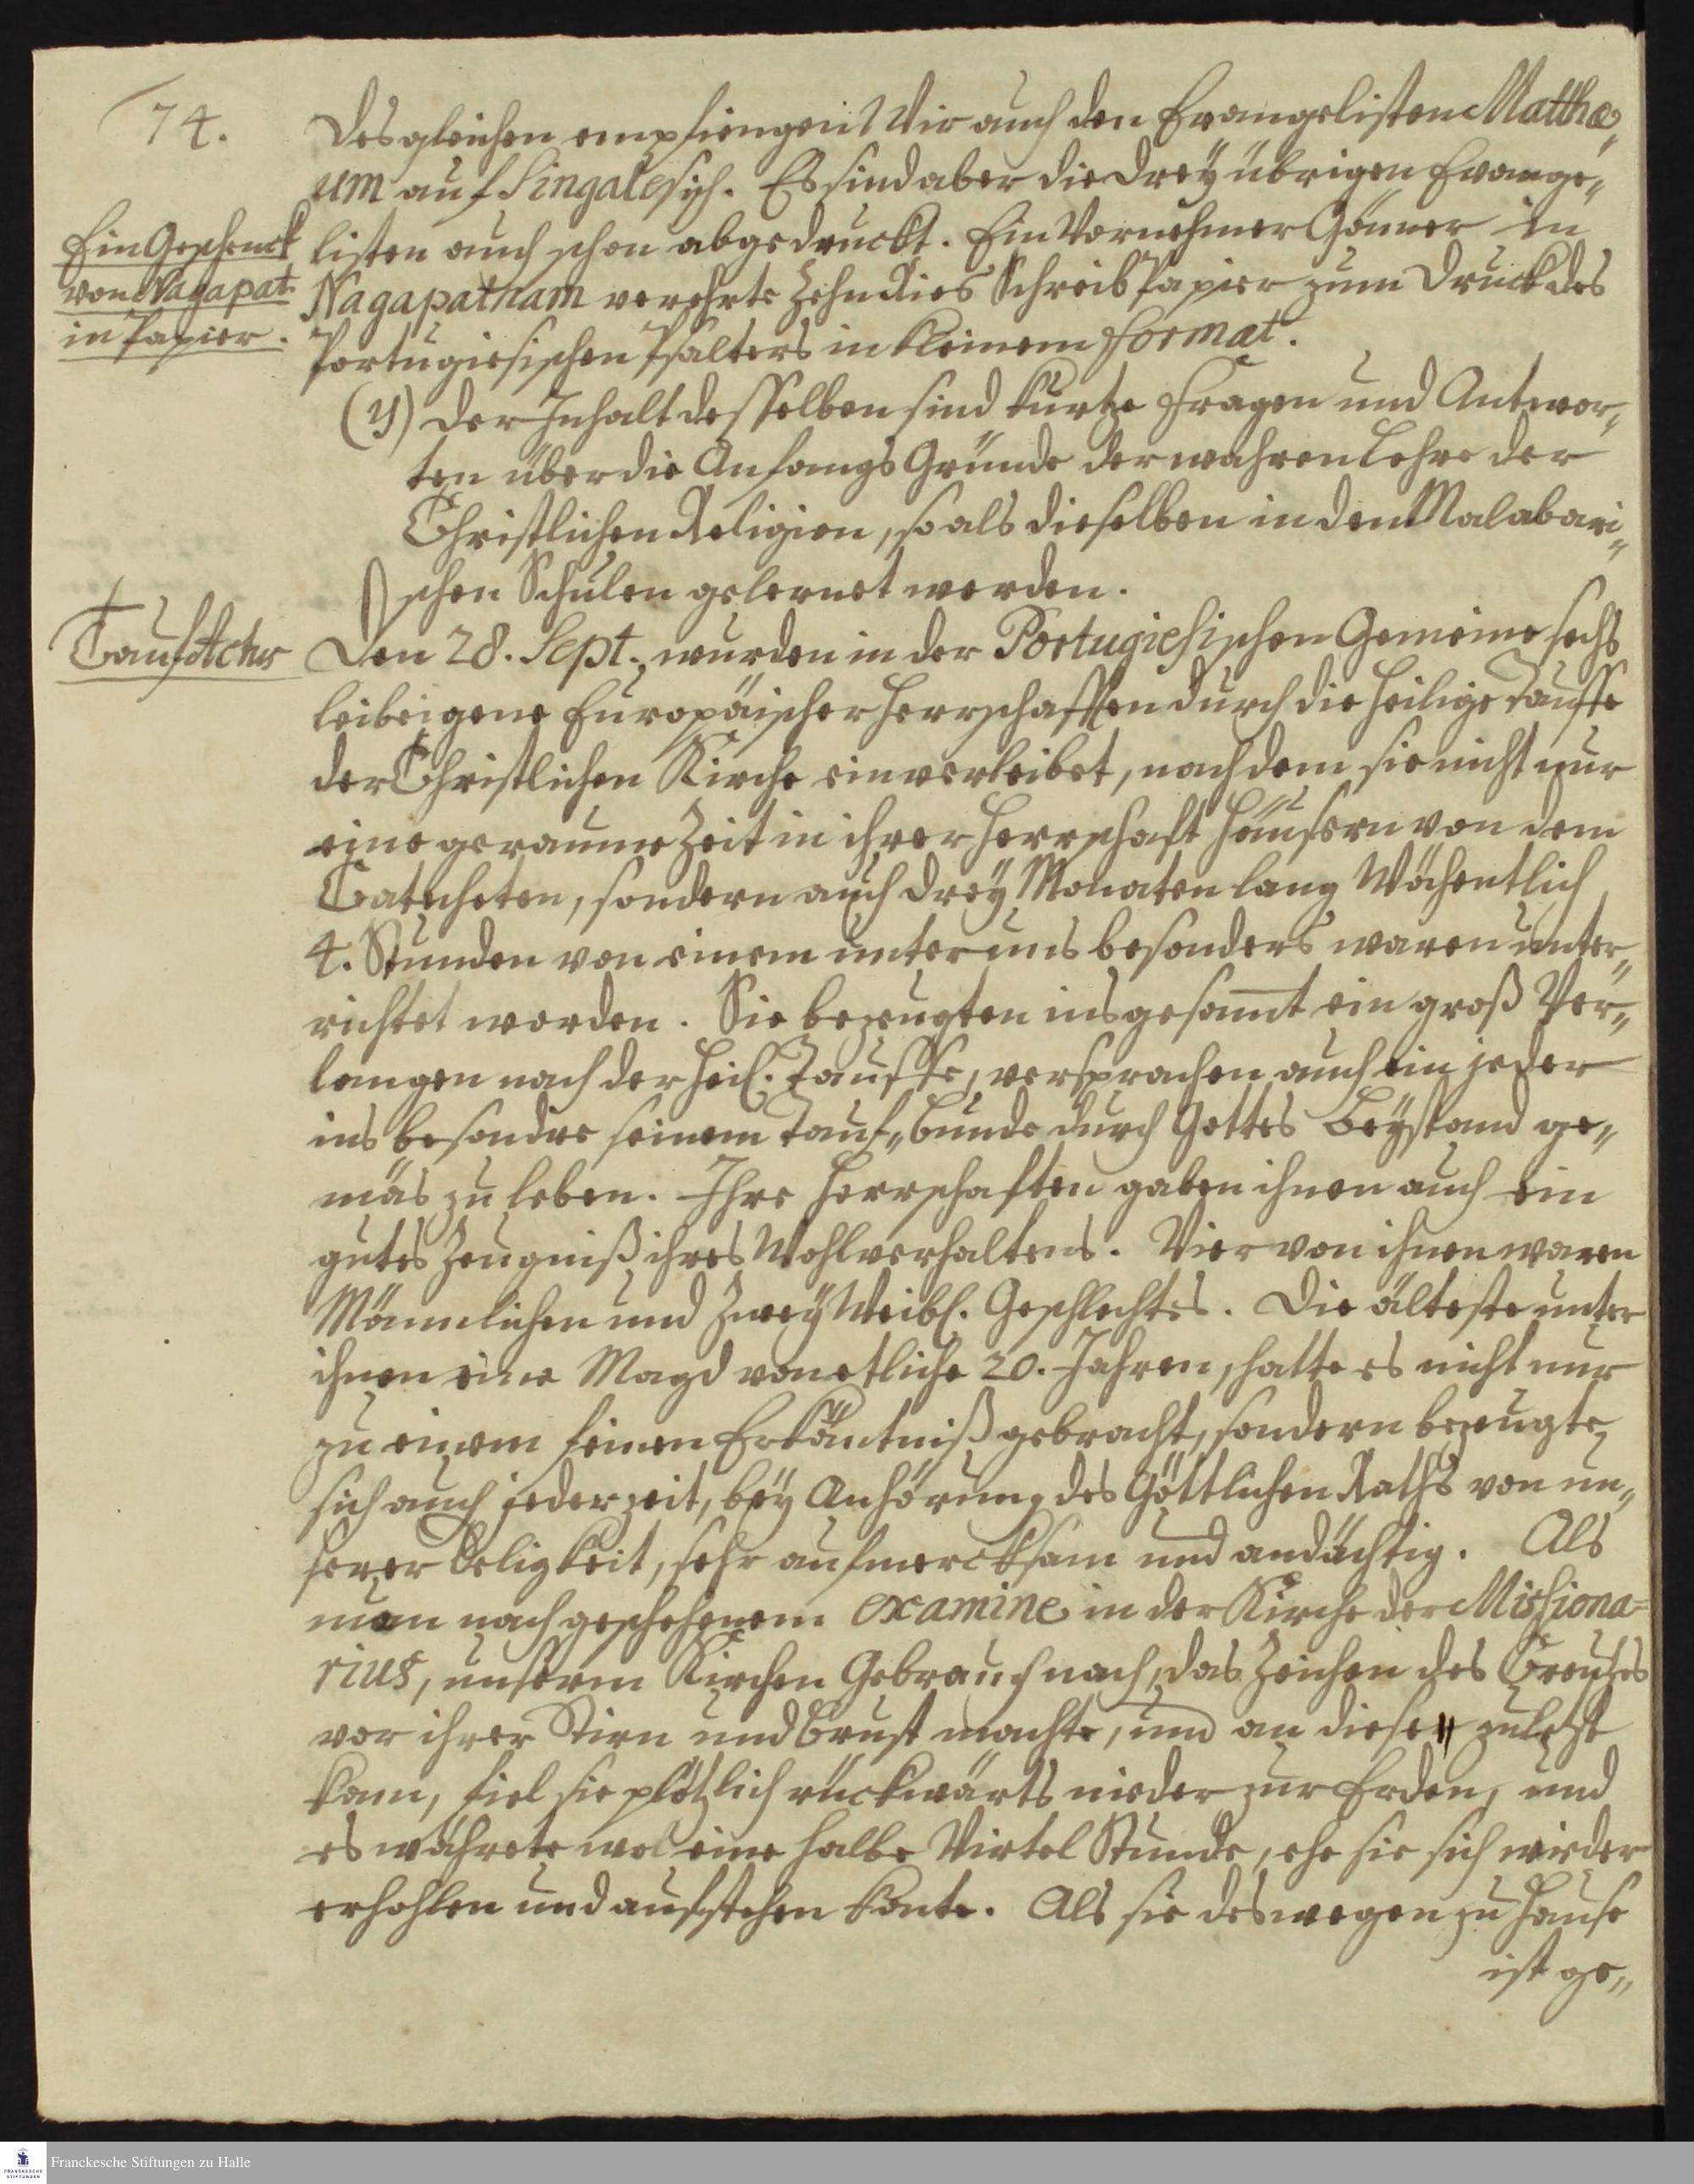 74.
Desgleichen empfiengen Wir auch den Evangelisten Matthæ„
um auf Singalesisch. Es sind aber die drey übrigen Evange„
Ein Geschenck
von Nagapat.
in Papier.
listen auch schon abgedruckt. Ein Vornehmer Gönner in
Nagapatnam verehrte Zehn Ries Schreib Papier zum Druck des
Portugiesischen Psalters in kleinem format.
(y) Der Inhalt desselben sind kurtze Fragen und Antwor„
ten über die Anfangs Gründe der wahren Lehre der
Christlichen Religion, so als dieselben in den Malabari„
schen Schulen gelernet werden.
Tauf Actus
Den 28. Sept. wurden in der Portugiesischen Gemeine sechs
leibeigene Europäischer Herrschafften durch die heilige Tauffe
der Christlichen Kirche einverleibet, nachdem sie nicht nur
eine geraume Zeit in ihrer Herrschaft Häusern von dem
Catecheten, sondern auch drey Monaten lang Wöchentlich
4. Stunden von einem unter uns besonders waren unter„
richtet worden. Sie bezeugten insgesamt ein groß Ver„
langen nach der heil. Tauffe, versprachen auch ein jeder
ins besondre seinem Tauf„bunde durch Gottes Beystand ge„
mäs zu leben. Ihre Herrschaften gaben ihnen auch ein
gutes Zeugniß ihres Wohlverhaltens. Vier von ihnen waren
Männlichen und Zwey Weibl. Geschlechtes. Die älteste unter
ihnen eine Magd von etliche 20. Jahren, hatte es nicht nur
zu einem feinen Erkäntniß gebracht, sondern bezeugte
sich auch jederzeit, bey Anhörung des Göttlichen Raths von un„
serer Seligkeit, sehr aufmercksam und andächtig. Als
nun nach geschehenem examine in der Kirche der Missiona=
rius, unserm Kirchen Gebrauch nach, das Zeichen des Creutzes
vor ihrer Stirn und Brust machte, und an diese zuletzt
kam, fiel sie plötzlich rückwärts nieder zur Erden, und
es währete wol eine halbe Virtel Stunde, ehe sie sich wieder
erhohlen und aufstehen konte. Als sie deswegen zu Hause
ist ge„
Franckesche Stiftungen zu Halle
FRANCKESCHE
STIFTUNGEN